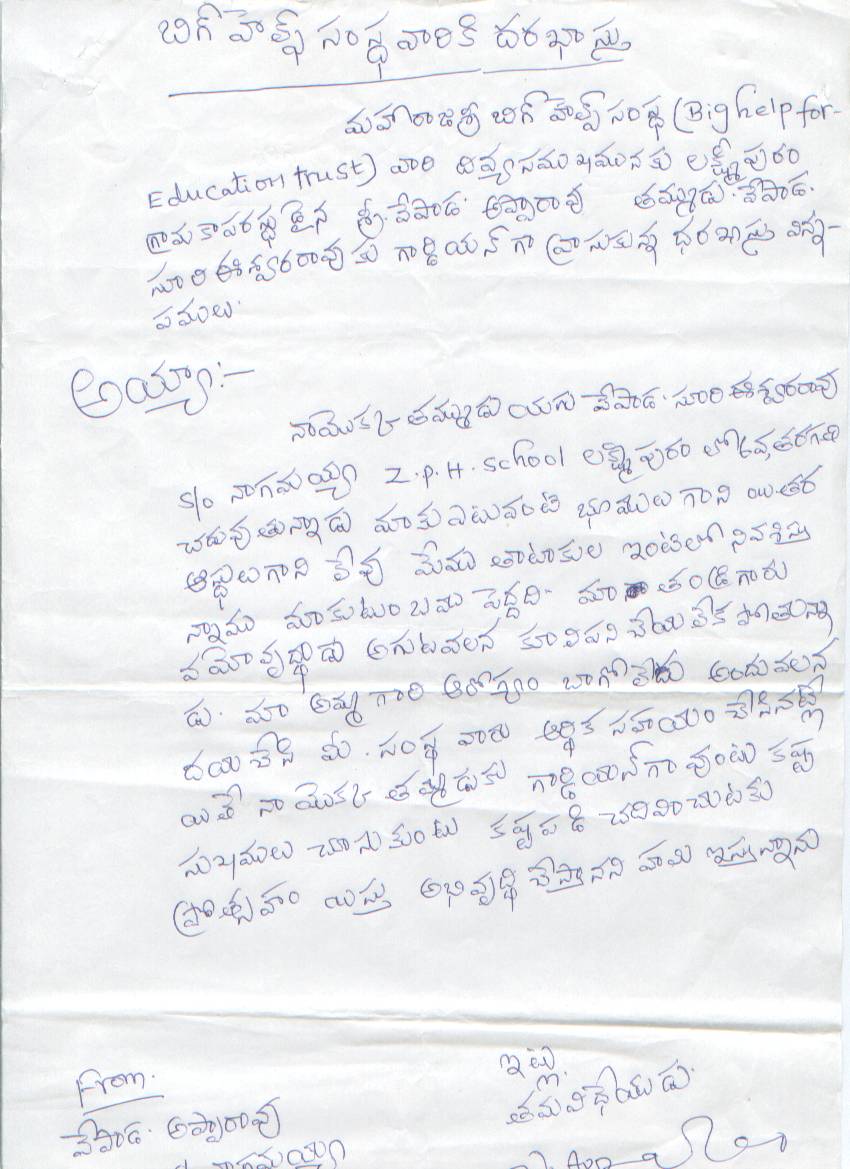 బిగ్ హెల్ప్ సంస్థ వారికి దరఖాస్తు
మహారాజశ్రీ బిగ్ హెల్ప్ సంస్థ (Big help for-
Education trust) వారి దివ్యసముఖమునకు లక్ష్మీపురం
గ్రామ కాపరస్థుడైన శ్రీ. వేపాడ. అప్పారావు తమ్ముడు. వేపాడ.
సూరి ఈశ్వరరావు కు గార్డియన్ గా వ్రాసుకున్న ధరఖాస్తు విన్న-
పములు.
అయ్యా:-
నాయొక్క తమ్ముడు యగు వేపాడ. సూరి ఈశ్వరరావు
S/o నాగమయ్య Z.P.H. School లక్ష్మీపురం లో తరగతి
చదువుతున్నాడు మాకు ఎటువంటి భూములు గాని యితర
ఆస్థులుగాని లేవు మేము తాటాకుల ఇంటిలో నివశిస్తు
న్నాము మాకుటుంబము పెద్దది. మా తండ్రిగారు
వయోవృద్ధుడు అగుటవలన కూలిపని చేయలేక పోతున్నా
డు. మా అమ్మగారి ఆరోగ్యం బాగోలేదు అందువలన
దయచేసి మీ. సంస్థ వారు ఆర్థిక సహయం చేసినట్లై
యితే నా యొక్క తమ్ముడుకు గార్డియన్ గా వుంటు కష్ట
సుఖములు చూసుకుంటు కష్టపడి చదివించుటకు
ప్రోత్సహం యిస్తు అభివృద్ధి చేస్తానని హమి ఇస్తున్నాను
From.
ఇట్లు
తమవిధేయుడు.
వేపాడ. అప్పారావు
నాగమయ్య